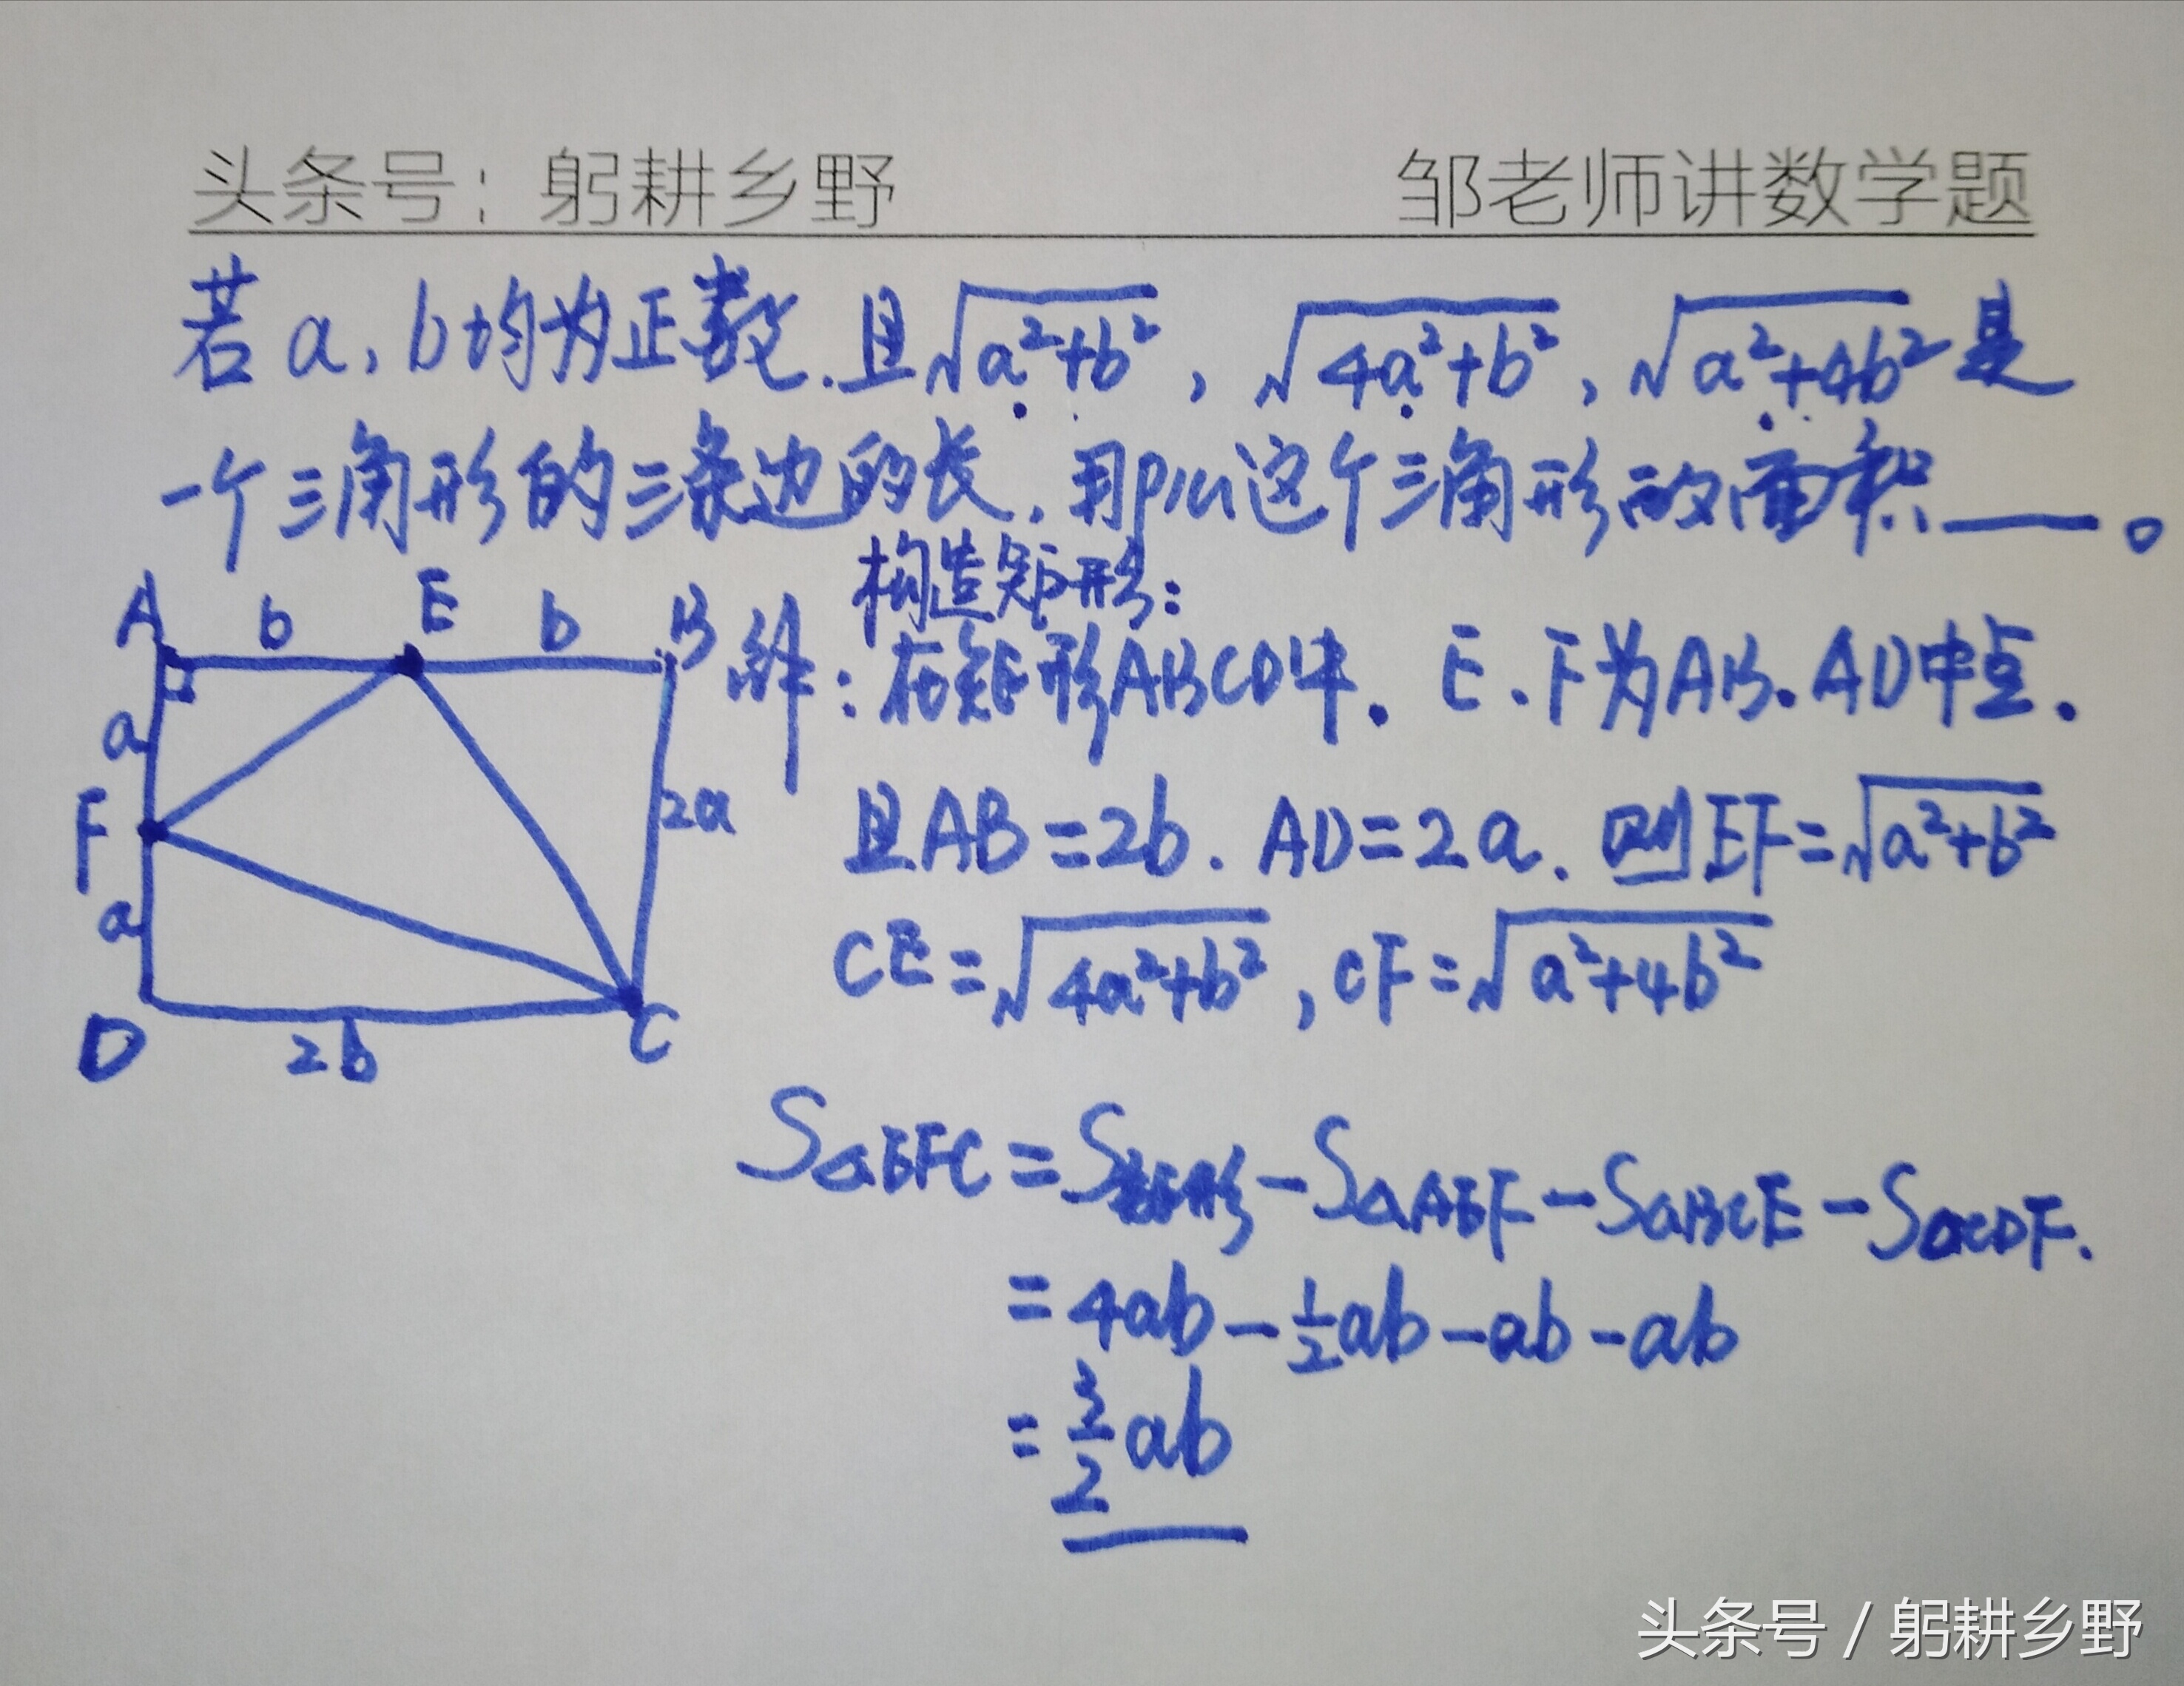 头条号：躬耕乡野
邹老师讲数学题
若a,b均为正数.且√(a²+b²),√(4a²+b²),√(a²+4b²)是
一个三角形的三条边的长.用以这个三角形的面积____。
A b E b B
a
F
a
2a
D 2b C
构造矩形:
解:在矩形ABCD中.E.F为AB.AD中点.
且AB=2b.AD=2a.则EF=√(a²+b²)
CE=√(4a²+b²),CF=√(a²+4b²)
S△EFC=S矩形-S△AEF-S△BCE-S△CDF.
=4ab-½ab-ab-ab
=3/2ab
头条号/躬耕乡野